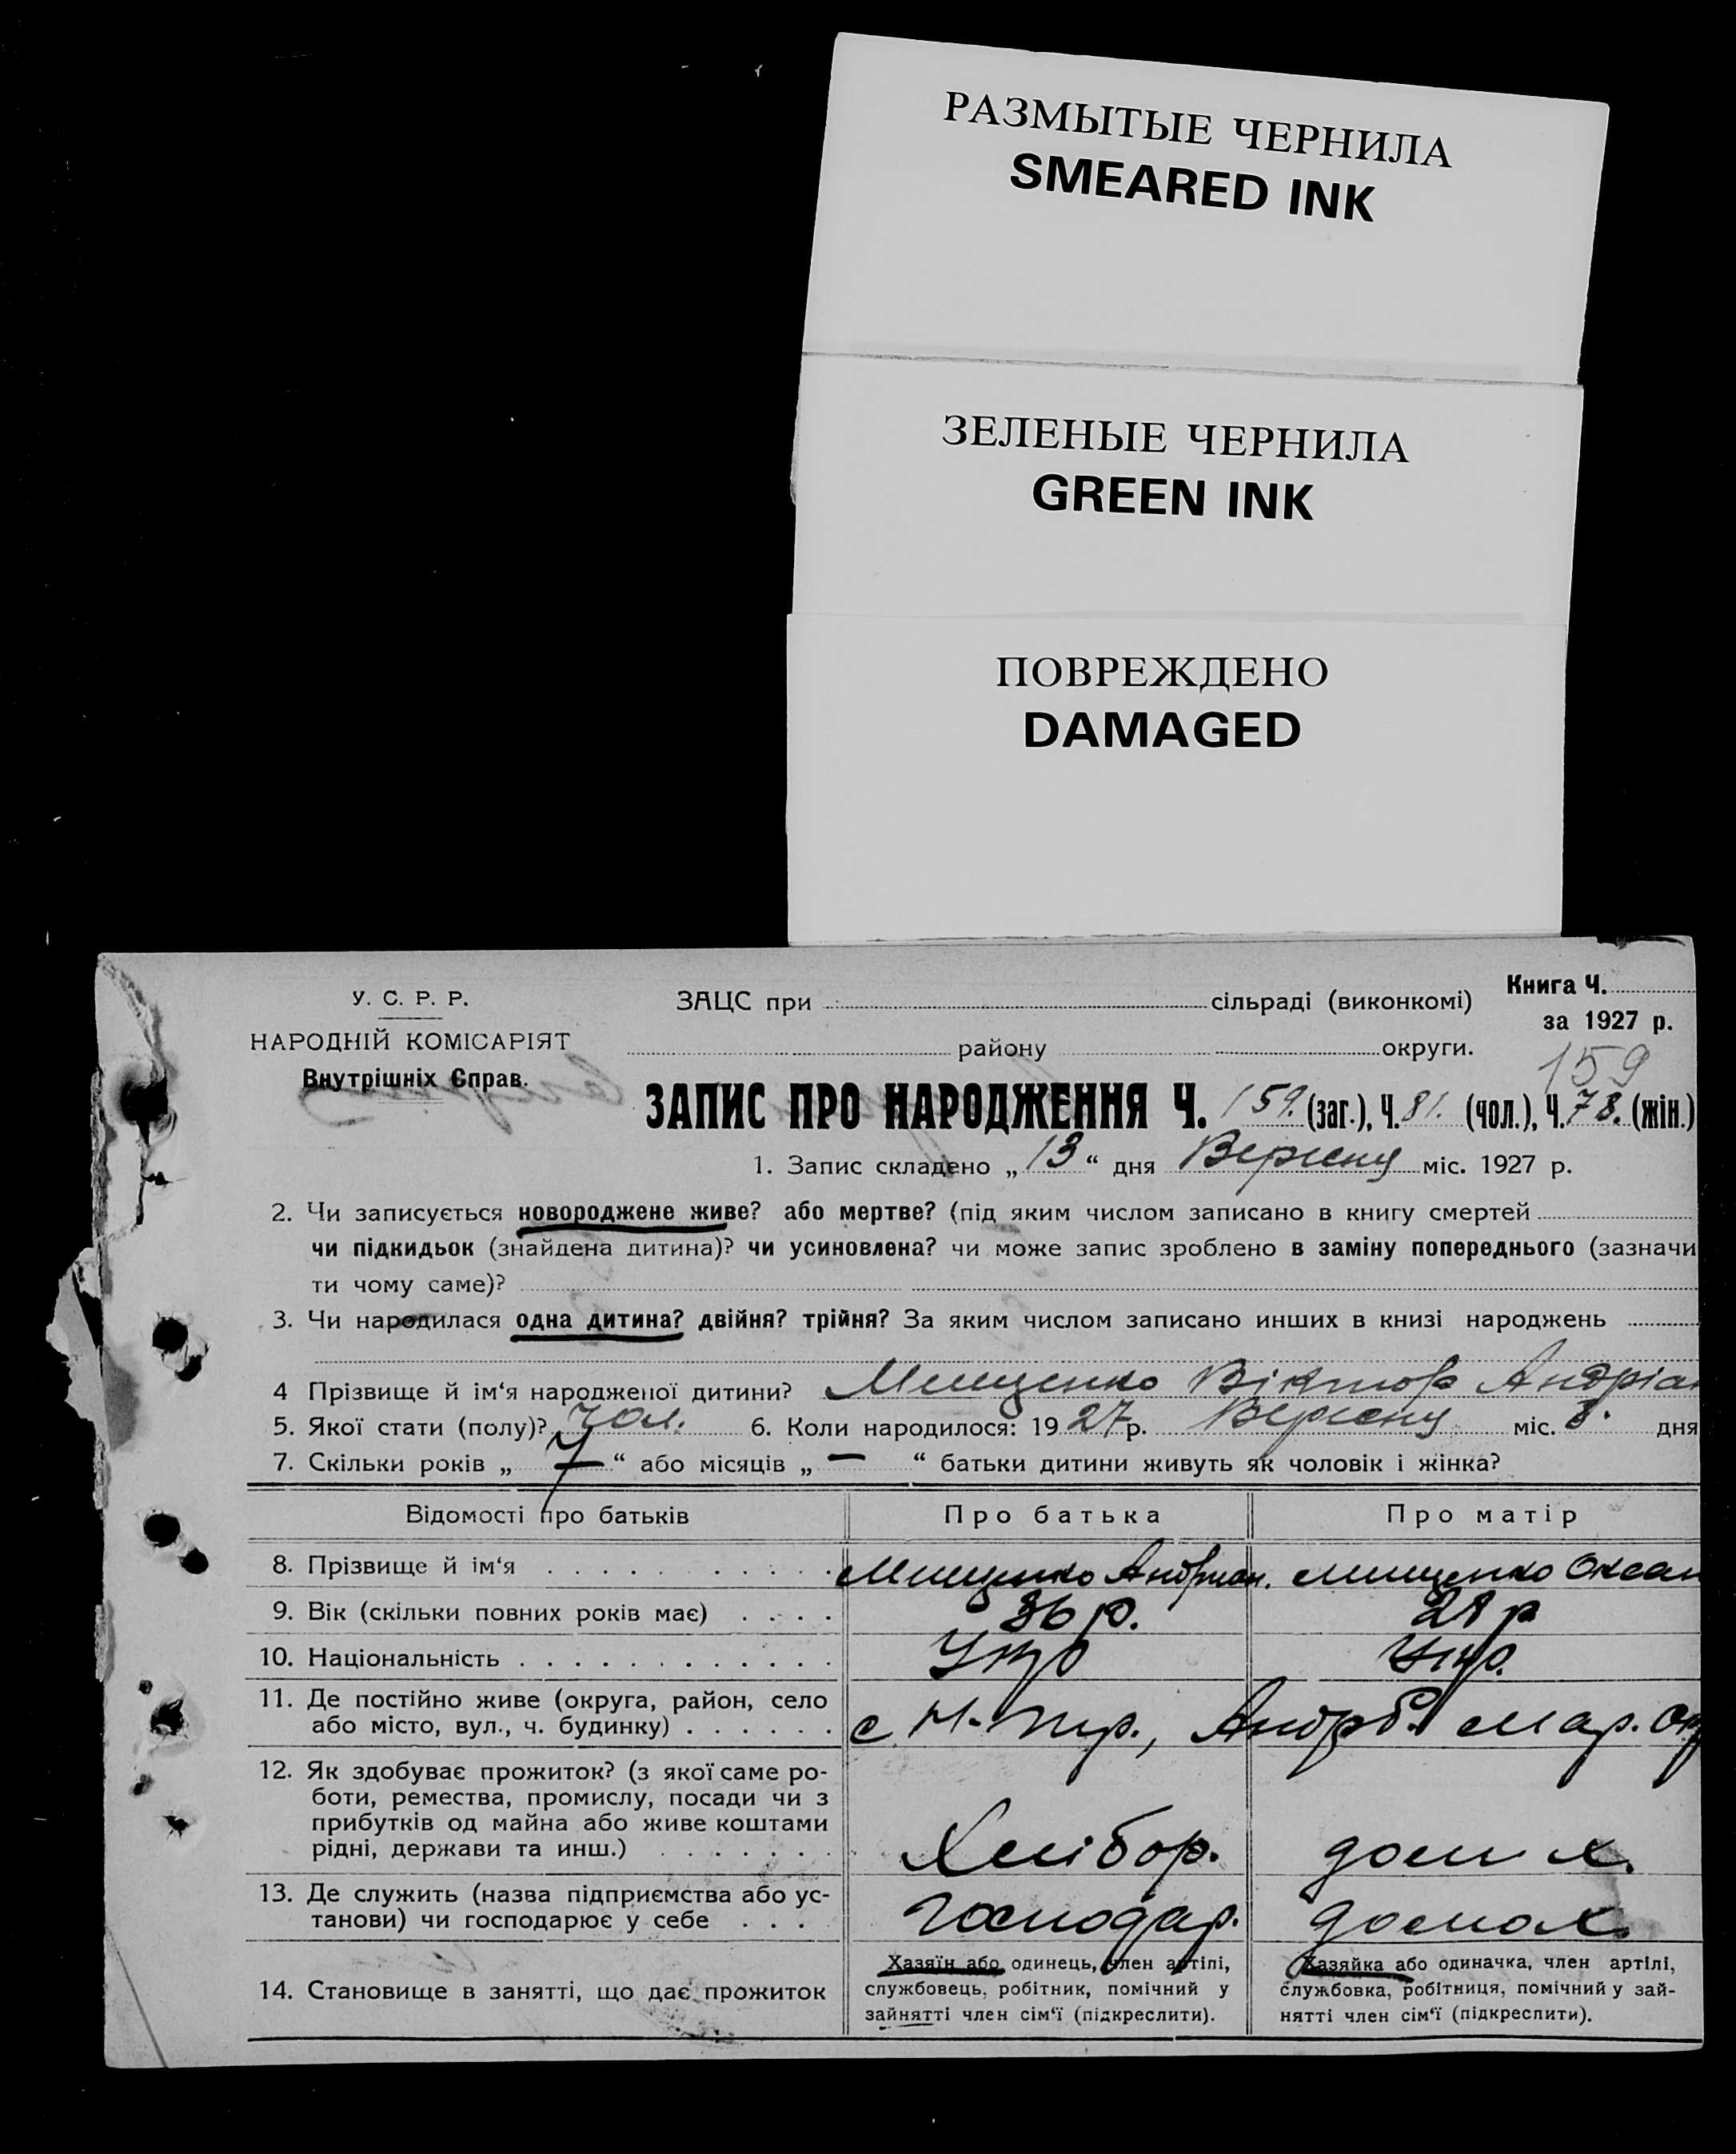 РАЗМЫТЫЕ ЧЕРНИЛА
SMEARED INK
ЗЕЛЕНЫЕ ЧЕРНИЛА
GREEN INK
ПОВРЕЖДЕНО
DAMAGED
У. С. Р. Р.
НАРОДНІЙ КОМІСАРІЯТ
Внутрішніх Справ.
Книга Ч.
за 1927 р.
ЗАЦС при сільраді (виконкомі)
району округи.
159
ЗАПИС ПРО НАРОДЖЕННЯ Ч. 159. (заг.), Ч. 81. (чол.), Ч. 78. (жін.)
1. Запис складено „13“ дня Вересня міс. 1927 р.
2. Чи записується новороджене живе? або мертве? (під яким числом записано в книгу смертей
чи підкидьок (знайдена дитина)? чи усиновлена? чи може запис зроблено в заміну попереднього (зазначи
ти чому саме)?
3. Чи народилася одна дитина? двійня? трійня? За яким числом записано инших в книзі народжень
4 Прізвище й ім‘я народженої дитини? Мищенко Віктор Андріан
5. Якої стати (полу)? Чол. 6. Коли народилося: 1927 р. Вересня міс. 8. дня
7. Скільки років „7“ або місяців „—“ батьки дитини живуть як чоловік і жінка?
Відомості про батьків Про батька Про матір
8. Прізвище й ім‘я Мищенко Андриан. Мищенко Оксан
9. Вік (скільки повних років має) 36 р. 28 р
10. Національність Укр Укр.
11. Де постійно живе (округа, район, село
або місто, вул., ч. будинку) с Н.- Андр. Мар. Окр
12. Як здобуває прожиток? (з якої саме ро-
боти, ремества, промислу, посади чи з
прибутків од майна або живе коштами
рідні, держави та инш.) Хлібор. дом х.
13. Де служить (назва підприємства або ус-
танови) чи господарює у себе Господар. домох.
14. Становище в занятті, що дає прожиток
Хазяїн або одинець, член артілі,
службовець, робітник, помічний у
зайнятті член сім‘ї (підкреслити).
Хазяйка або одиначка, член артілі,
службовка, робітниця, помічний у зай-
нятті член сім‘ї (підкреслити).